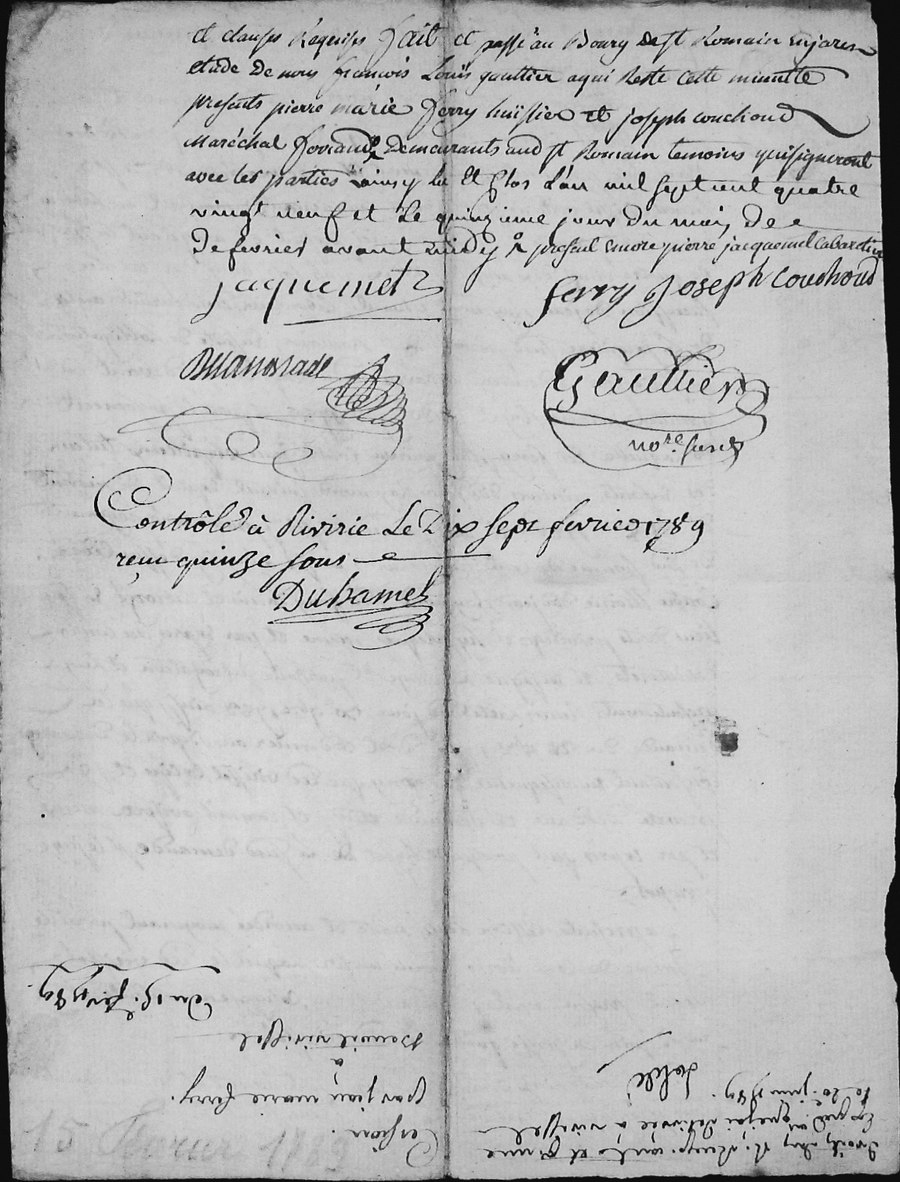 et clauses Requises fait et passé au Bourg de st Romain en jarest
etude de nous françois Louis gaultier a qui Reste cette minutte
presents pierre marie ferry huissier et joseph couchoud
Maréchal ferrand Demeurants aud st Romain temoins qui signeront
avec les parties ainsy lu et Clos L'an mil sept cent quatre
vingt neuf et Le quinzieme jour du mois de
de fevrier avant midy & present encore pierre jacquemet cabaretier
jaquemet
ferry Joseph couchoud
Gaultier
no.re
Contrôlé à Rivirie Le Dix sept fevrier 1789
reçu quinze sous
Duhamel
Cession.
par jean marie ferry.
à
Benoit virissel
du 15. fev. 1789.
15 Février 1789
Expédié
le 20. juin 1789.